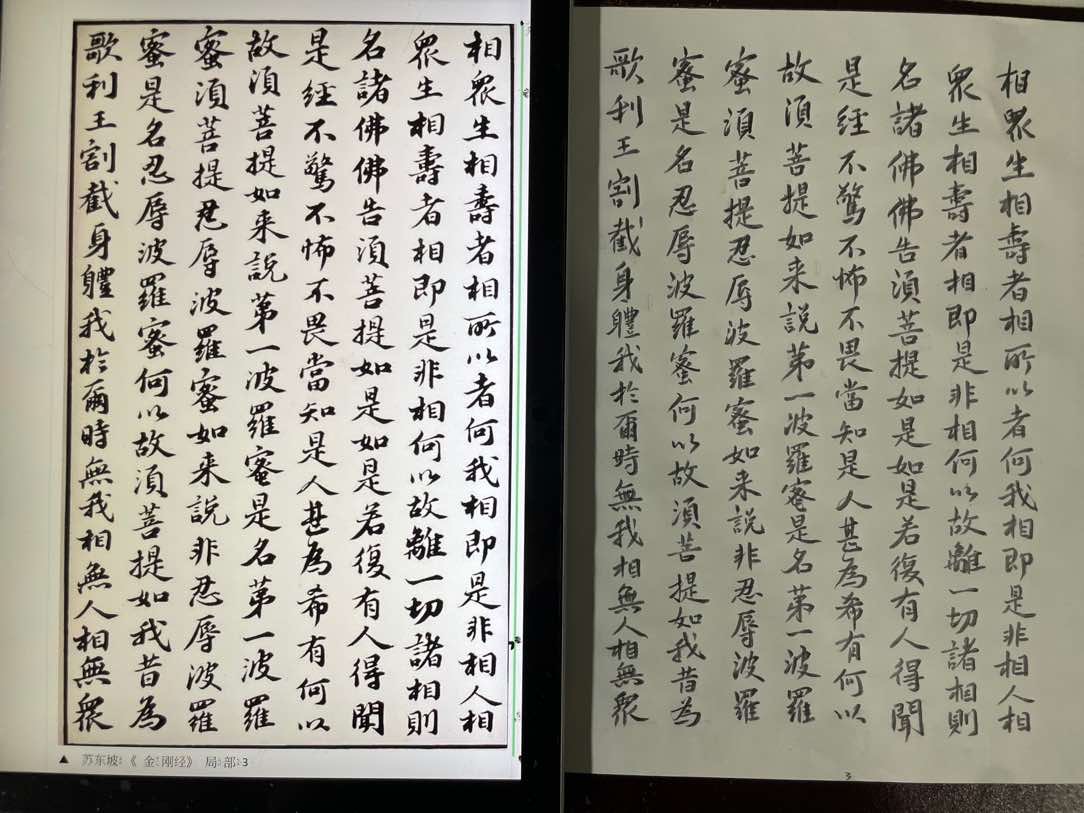 相衆生相壽者相所以者何我相即是非相人相
衆生相壽者相即是非相何以故離一切諸相則
名諸佛佛告湏菩提如是如是若復有人得聞
是經不驚不怖不畏當知是人甚為希有何以
故湏菩提如来說苐一波羅蜜是名苐一波羅
蜜湏菩提忍辱波羅蜜如来說非忍辱波羅
蜜是名忍辱波羅蜜何以故湏菩提如我昔為
歌利王割截身體我於爾時無我相無人相無衆
▲ 苏东坡:《金刚经》局部:3
相衆生相壽者相所以者何我相即是非相人相
衆生相壽者相即是非相何以故離一切諸相則
名諸佛佛告湏菩提如是如是若復有人得聞
是經不驚不怖不畏當知是人甚為希有何以
故湏菩提如来說苐一波羅蜜是名苐一波羅
蜜湏菩提忍辱波羅蜜如来說非忍辱波羅
蜜是名忍辱波羅蜜何以故湏菩提如我昔為
歌利王割截身體我於爾時無我相無人相無衆
3